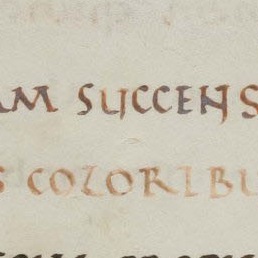 AM SUCCENS
S COLORIBU